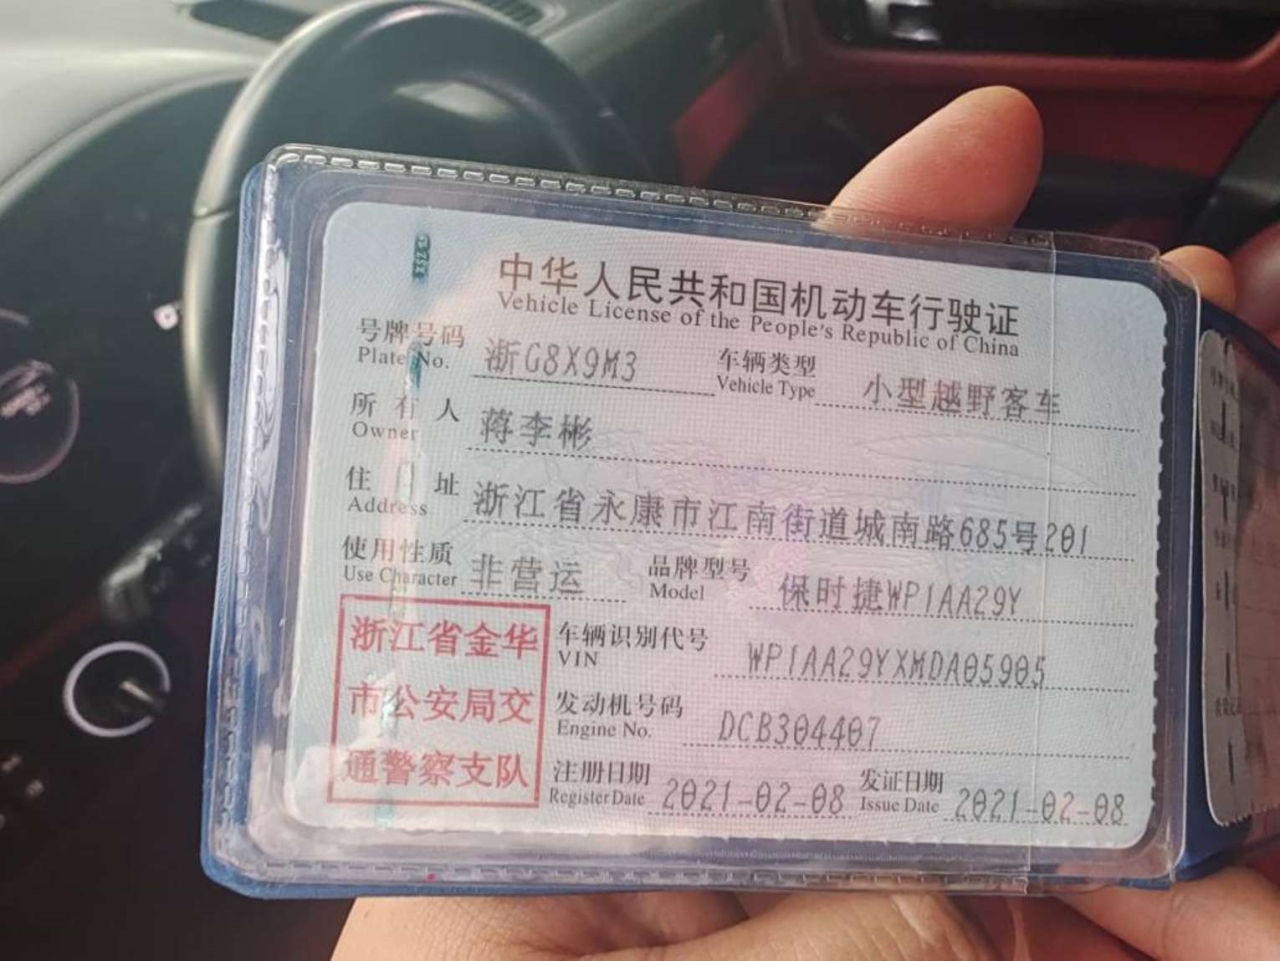 中华人民共和国机动车行驶证
Vehicle License of the People's Republic of China
号牌号码 浙G8X9M3 车辆类型 小型越野客车
Plate No. Vehicle Type
所有人 蒋李彬
Owner
住址 浙江省永康市江南街道城南路685号201
Address
使用性质 非营运 品牌型号 保时捷WP1AA29Y
Use Character Model
浙江省金华
市公安局交
通警察支队
车辆识别代号 WP1AA29YXMDA05905
VIN
发动机号码 DCB304407
Engine No.
注册日期 2021-02-08 发证日期 2021-02-08
Register Date Issue Date